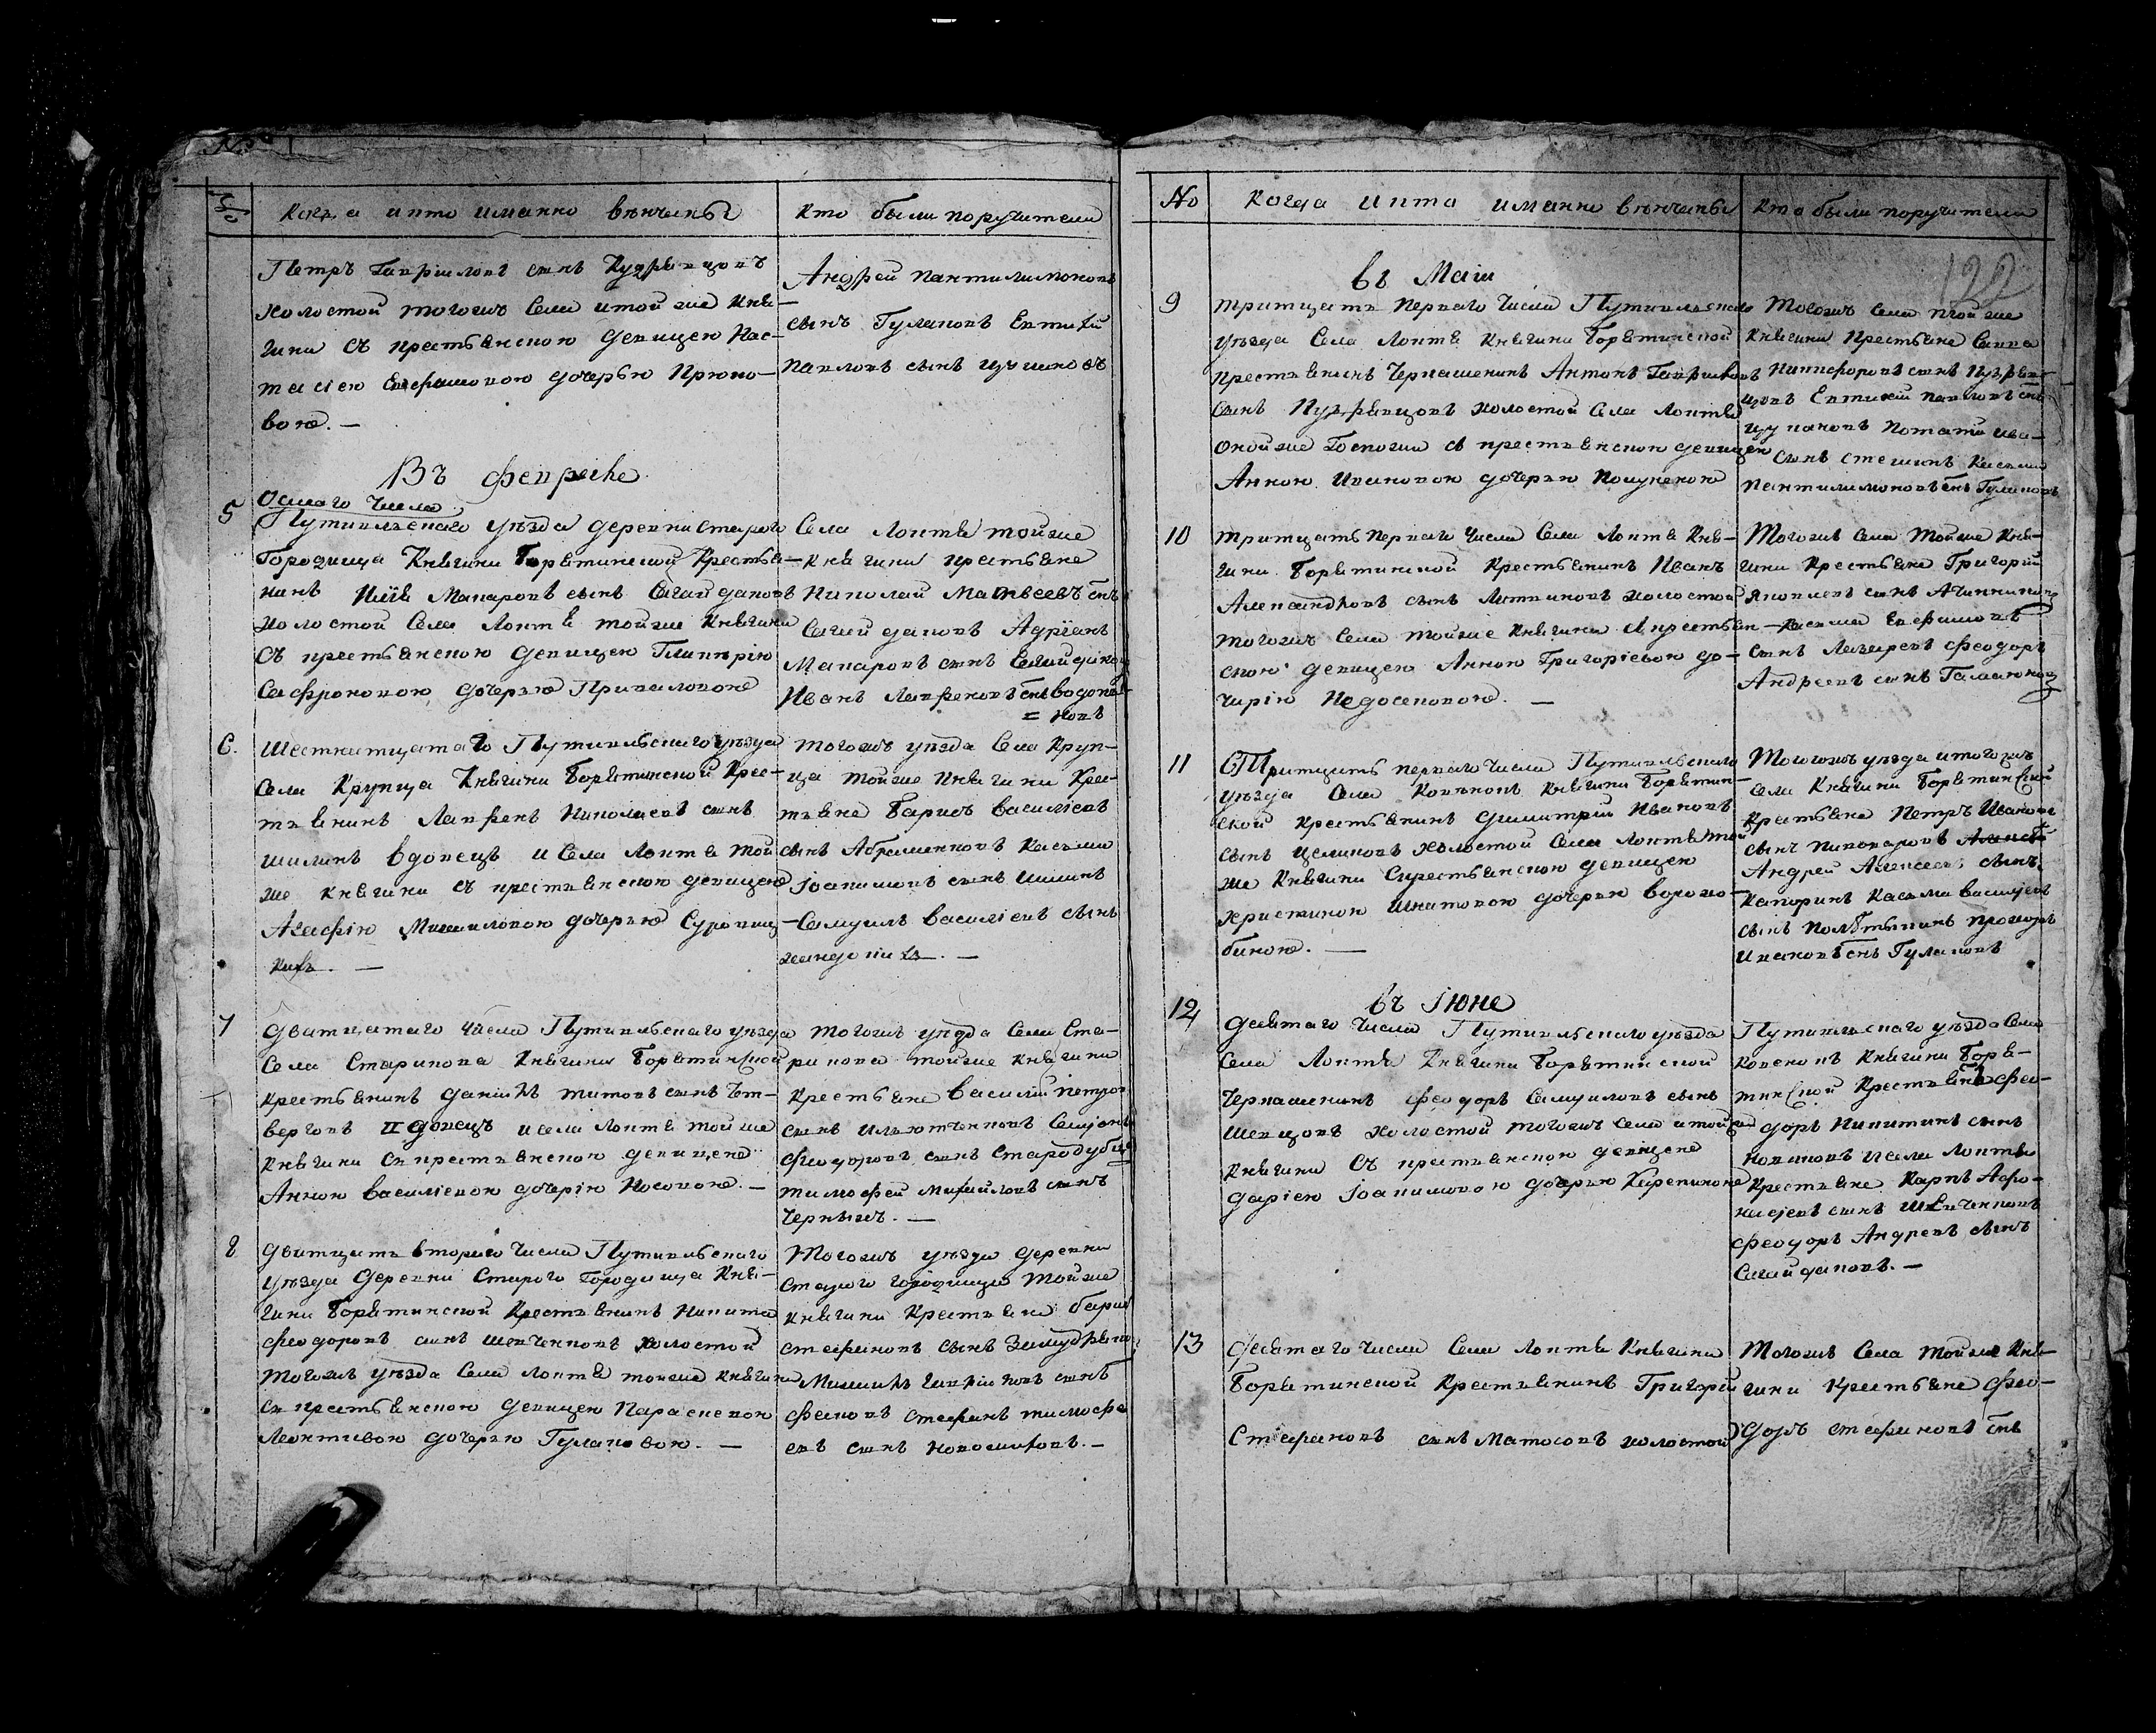 №
когда и кто имянно венчаны
кто были поручители
Петръ Гавриловъ сынъ Кудрявцовъ
холостой тогожъ села и той же Кня-
гини съ крестьянскою девицею Нас-
тасіею Евфимовою дочерью Крюко-
вою. —
Андрей Пантилимоновъ
сынъ Гулаковъ Евтихій
Павловъ сынъ
Въ февралѣ
Осмаго числа
5 Путивльскаго уѣзда деревни Старого
Городища Княгини Борятинской Крестья-
нинъ Макаровъ сынъ Сагайдаковъ
холостой села Локтя тойже Княгини
съ крестьянскою девицею Гликирію
Сафроновою дочерью Приваловою
Села Локтя тойже
Княгини крестьяне
Николай Матвеевъ снъ
Сагайдаковъ Адріанъ
Макаровъ снъ Сагайдаков
Иванъ Лавреновъ снъ водопья-
= новъ
6. Шестнатцатаго Путивльскаго уѣзда
села Крупца Княгини Борятинской Крес-
тьянинъ Лавренъ Николаевъ сынъ
Шилинъ вдовецъ и села Локтя той
же Княгини съ крестьянскою девицею
Агафію Михаиловою дочерью
тогожъ уѣзда села Круп-
ца тойже Княгини Крес-
тьяне Барисъ Василіевъ
сынъ Абраменковъ Касьми
Іоакимовъ сынъ Шилинъ
Самуилъ Василіевъ сынъ
7 Дватцатаго числа Путивльскаго уѣзда
Села Старикова Княгини Борятинской
крестьянинъ Данилъ Титовъ сынъ Чет-
верговъ вдовецъ и села Локтя той же
Княгини съ крестьянскою девицею
Анною Василіевою дочерію Носовою. —
тогожъ уезда Села Ста-
рикова тойже Княгини
Крестьяне Василій Петров
сынъ Семіонъ
Феодоровъ сынъ Стародубц
Тимофей Михаиловъ сынъ
Чернышъ. —
8 Дватцать второго числа Путивльскаго
уѣзда деревни Старого Городища Кня-
гини Борятинской Крестьянинъ Никита
Феодоровъ сынъ Шевченковъ холостой
тогожъ уѣзда села Локтя тойже Княгини
съ крестьянскою девицею Параскевою
Леонтивою дочерью Гулаковою. —
Тогожъ уѣзда деревни
Старого Городища тойже
Княгини Крестьяне Барисъ
Стефановъ сынъ
Михаилъ Гавриловъ сынъ
Стефанъ Тимофе
евъ сынъ
№
Когда и кто имянно венчаны
Кто были поручители
122
въ Маіи
9 тритцать перваго числа Путивльскаго
уѣзда Села Локтя Княгини Борятинской
крестьянинъ Черкашенинъ Антонъ Гавриловъ
сынъ Кудрявцовъ холостой села Локтя
оной же Госпожи съ крестьянскою девицею
Анною Ивановою дочерью
Тогожъ села и той же
Княгини Крестьяне Савва
Никифоровъ сынъ Кудряв-
цовъ Евтихій Павловъ снъ
Потапъ Ива-
сынъ Стешинъ Касьми
Пантилимоновъ снъ Гулаковъ
10 тритцать перваго числа Села Локтя Кня-
гини Борятинской Крестьянинъ Иванъ
Александровъ сынъ холостой
тогожъ села тойже Княгини съ крестьян-
скою девицею Анною Григоріевою до-
черію Недосековою. —
Тогожъ села тойже Кня-
гини Крестьяне Григорій
Яковлевъ сынъ
Касьми Евфимовъ
сынъ Лазаревъ Феодоръ
Андреевъ сынъ
11 Тритцать перваго числа Путивльскаго
уѣзда села Ковѣнокъ Княгини Борятин-
ской крестьянинъ Димитрій Ивановъ
сынъ Целиковъ холостой села Локтя той
же Княгини съ крестьянскою девицею
Христиною Игнатовою дочерью Ворожо-
биною. —
Тогожъ уѣзда и тогожъ
села Княгини Борятинской
Крестьяне Петръ Ивановъ
сынъ Пивоваровъ
Андрей Алексеевъ сынъ
Касьма Василіевъ
сынъ Прохоръ
Ивановъ снъ Гулаковъ
въ Іюне
12 Десятаго числа Путивльскаго уѣзда
Села Локтя Княгини Борятинской
Черкашенинъ Феодоръ Самуиловъ сынъ
Шевцовъ холостой тогожъ села и тойже
Княгини съ крестьянскою девицею
Даріею Іоакимовою дочерью
Путивльскаго уѣзда Села
Ковенокъ Княгини Боря-
тинской Крестьяне Фео-
доръ Никитинъ сынъ
Новиковъ и села Локтя
Крестьяне Карпъ Афо-
насіевъ сынъ Шевченковъ
Феодоръ Андреевъ сынъ
Сагайдаковъ. —
13 Десятаго числа Села Локтя Княгини
Борятинской Крестьянинъ Григорій
Стефановъ сынъ Матюсовъ холостой
Тогожъ Села тойже Кня-
гини Крестьяне Фео-
доръ Стефановъ снъ